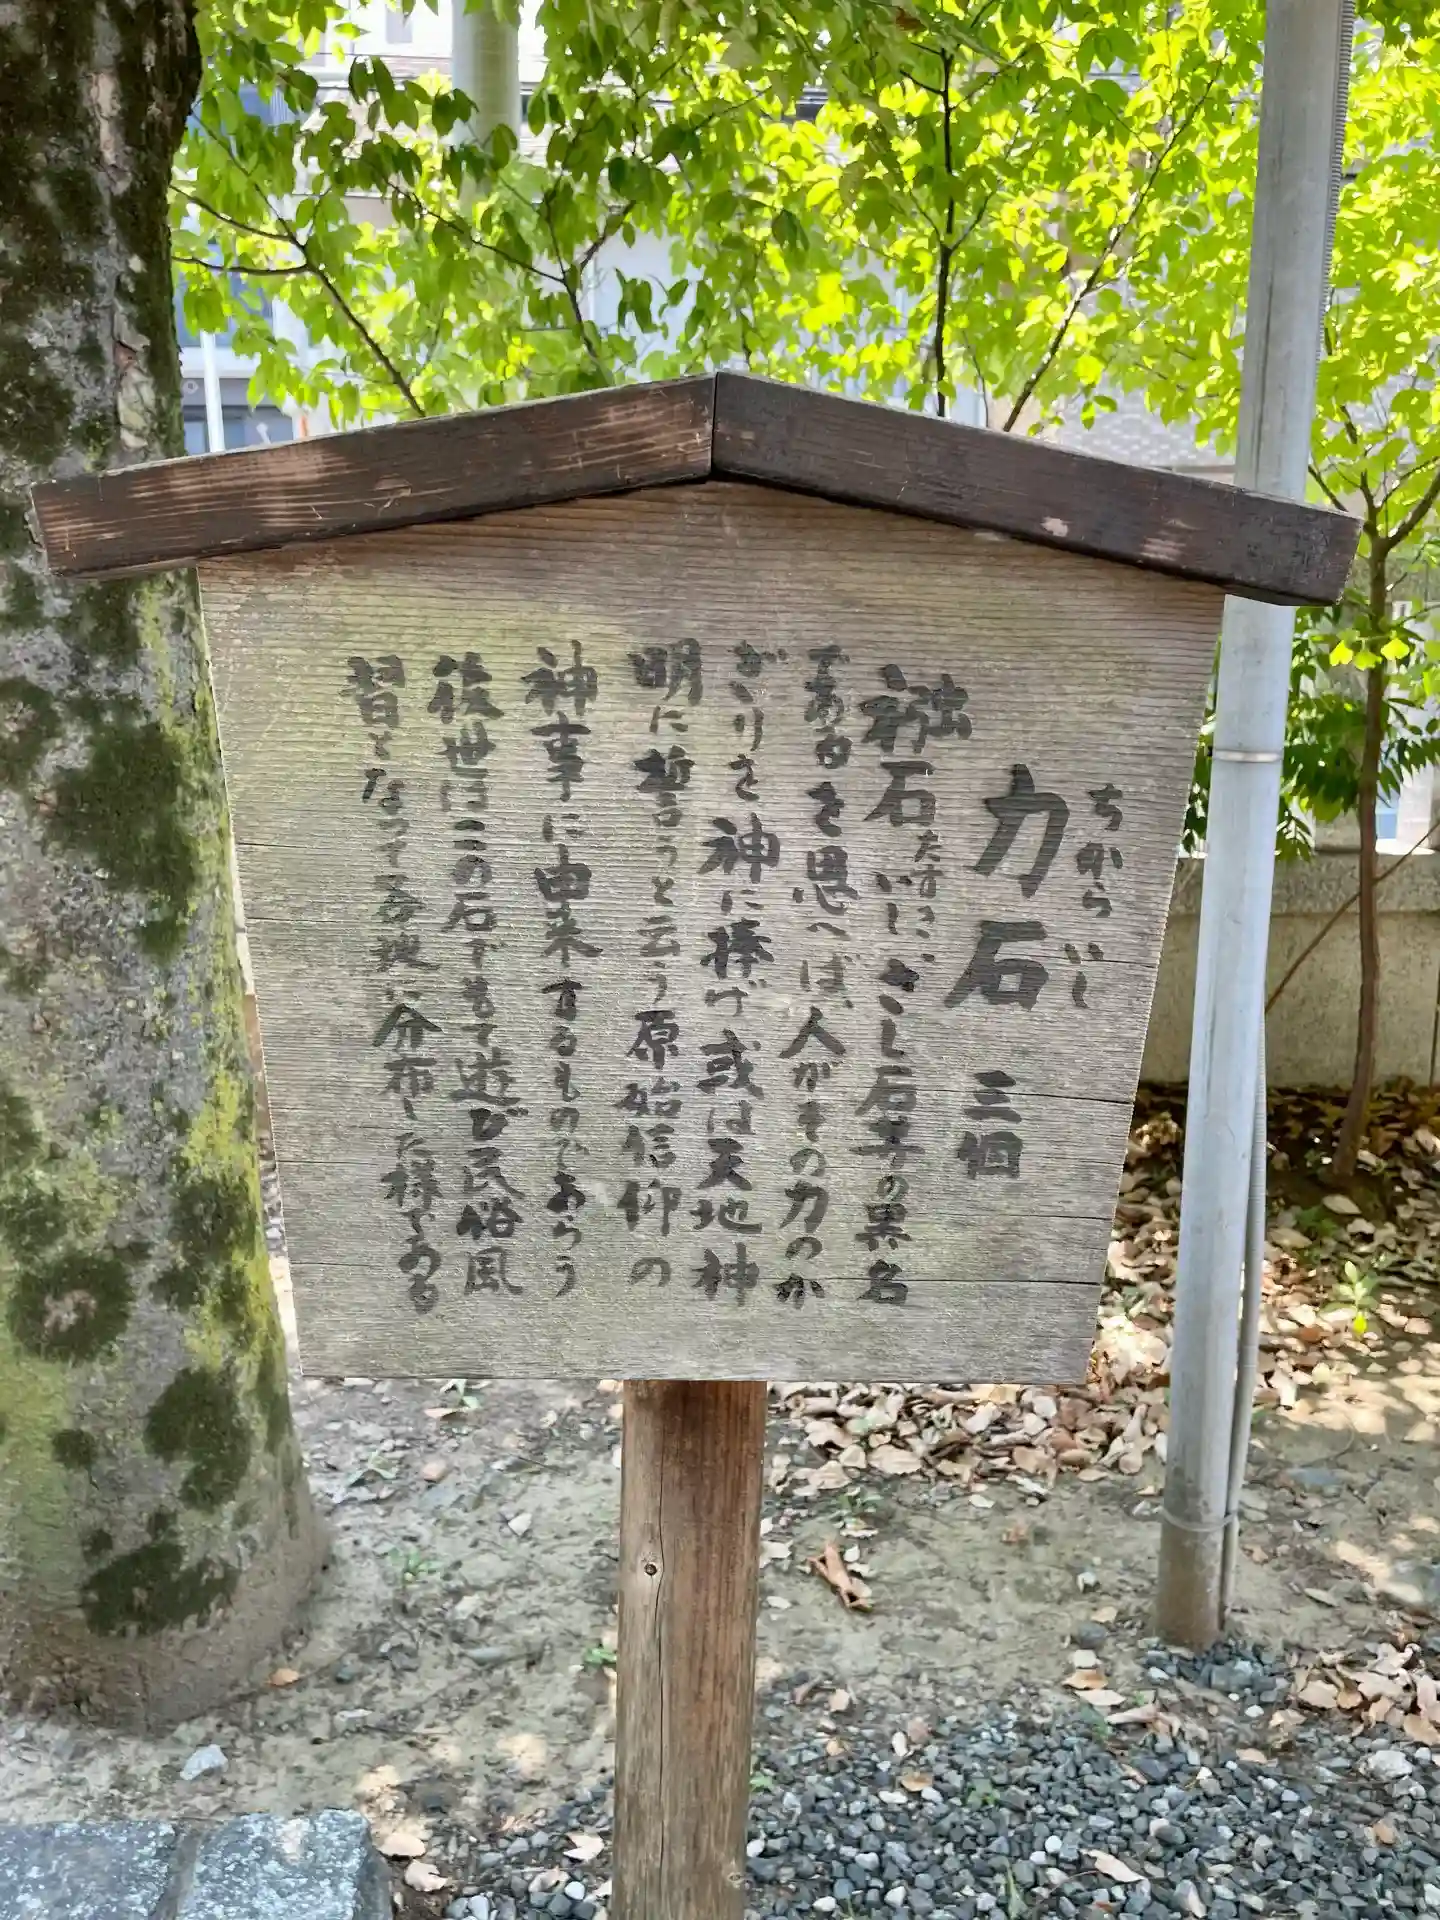 ちから いし
力石 三個
石 いし、さし石等の異名
であるを思へば、人がその力のか
ぎりを神に捧げ或は天地神
明に誓うと云う原始信仰の
神事に由来するものであらう
後世はこの石でもて遊び民俗風
習となって各地に分布した様である